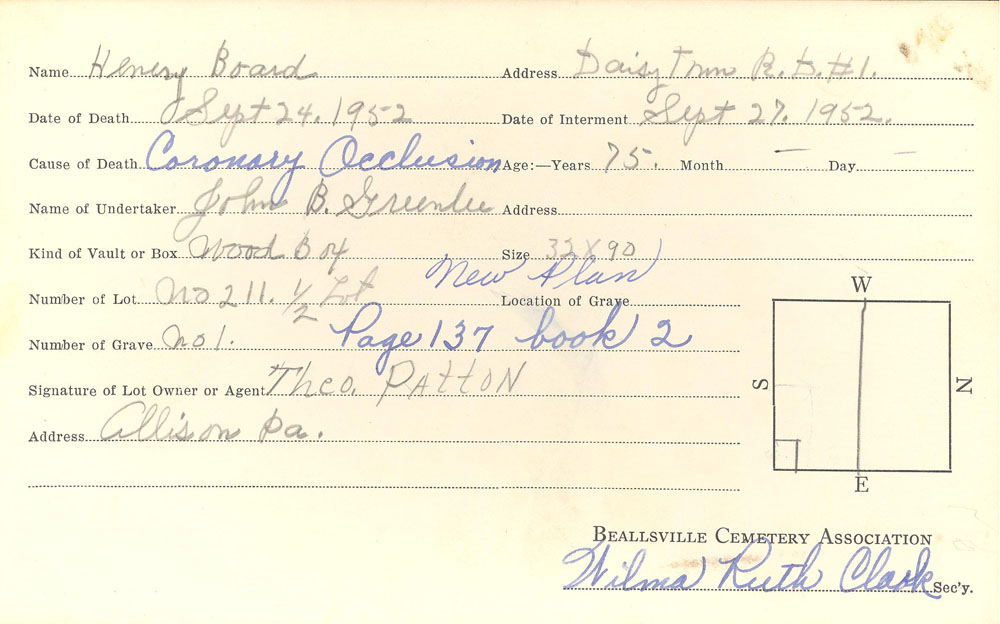 Name Henery Board Address Daisytown R.D.#1.
Date of Death Sept 24. 1952 Date of Interment Sept 27. 1952.
Cause of Death Coronary Occlusion Age:—Years 75. Month — Day —
Name of Undertaker John B. Greenlee Address
Kind of Vault or Box Wood Box Size 32 X 90
New Plan
Number of Lot No 211. 1/2 Lot Location of Grave
Number of Grave No 1. Page 137 book 2
Signature of Lot Owner or Agent Theo. PATTON
Address Allison Pa.
W
S
N
E
BEALLSVILLE CEMETERY ASSOCIATION
Wilma Ruth Clark Sec'y.